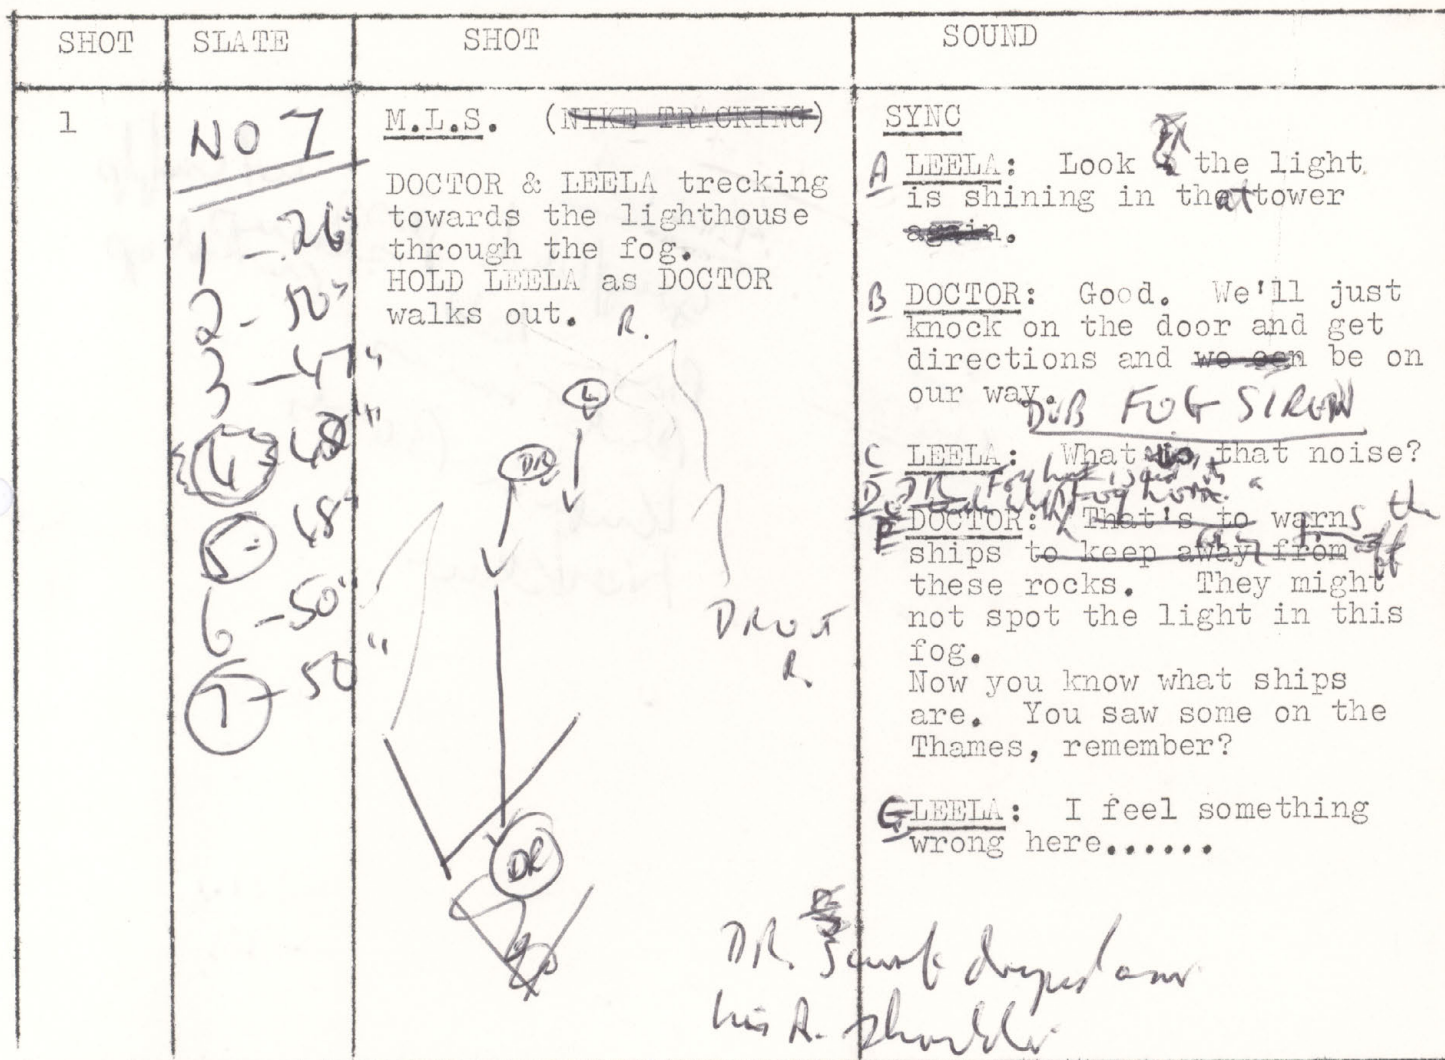 SHOT SLATE SHOT SOUND
1
NO 7
1 - 26"
2 - 50"
3 - 47"
4 - 48"
5 - 48"
6 - 50"
7 - 50"
M.L.S. (MIKE TRACKING)
DOCTOR & LEELA trecking
towards the lighthouse
through the fog.
HOLD LEELA as DOCTOR
walks out. R.
L
DR
DR OUT
R.
DR
SYNC
A LEELA: Look the light
is shining in that tower
again.
B DOCTOR: Good. We'll just
knock on the door and get
directions and we can be on
our way.
DUB FOG SIREN
C LEELA: What that noise?
D DR Fog
E DOCTOR: That's to warns the
ships to keep away from off
these rocks. They might
not spot the light in this
fog.
Now you know what ships
are. You saw some on the
Thames, remember?
G LEELA: I feel something
wrong here......
DR. Scarf draped over
his R. shoulder